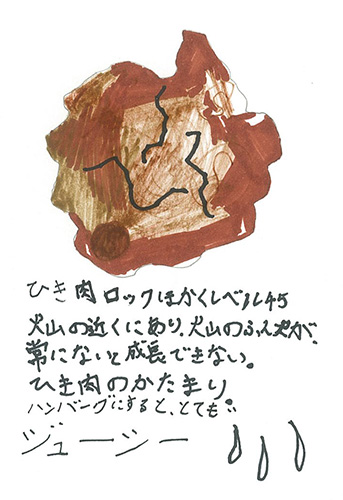 ひき肉ロックほかくレベル45
火山の近くにあり、火山のふん火が、
常にないと成長できない。
ひき肉のかたまり
ハンバーグにすると、とても
ジューシー